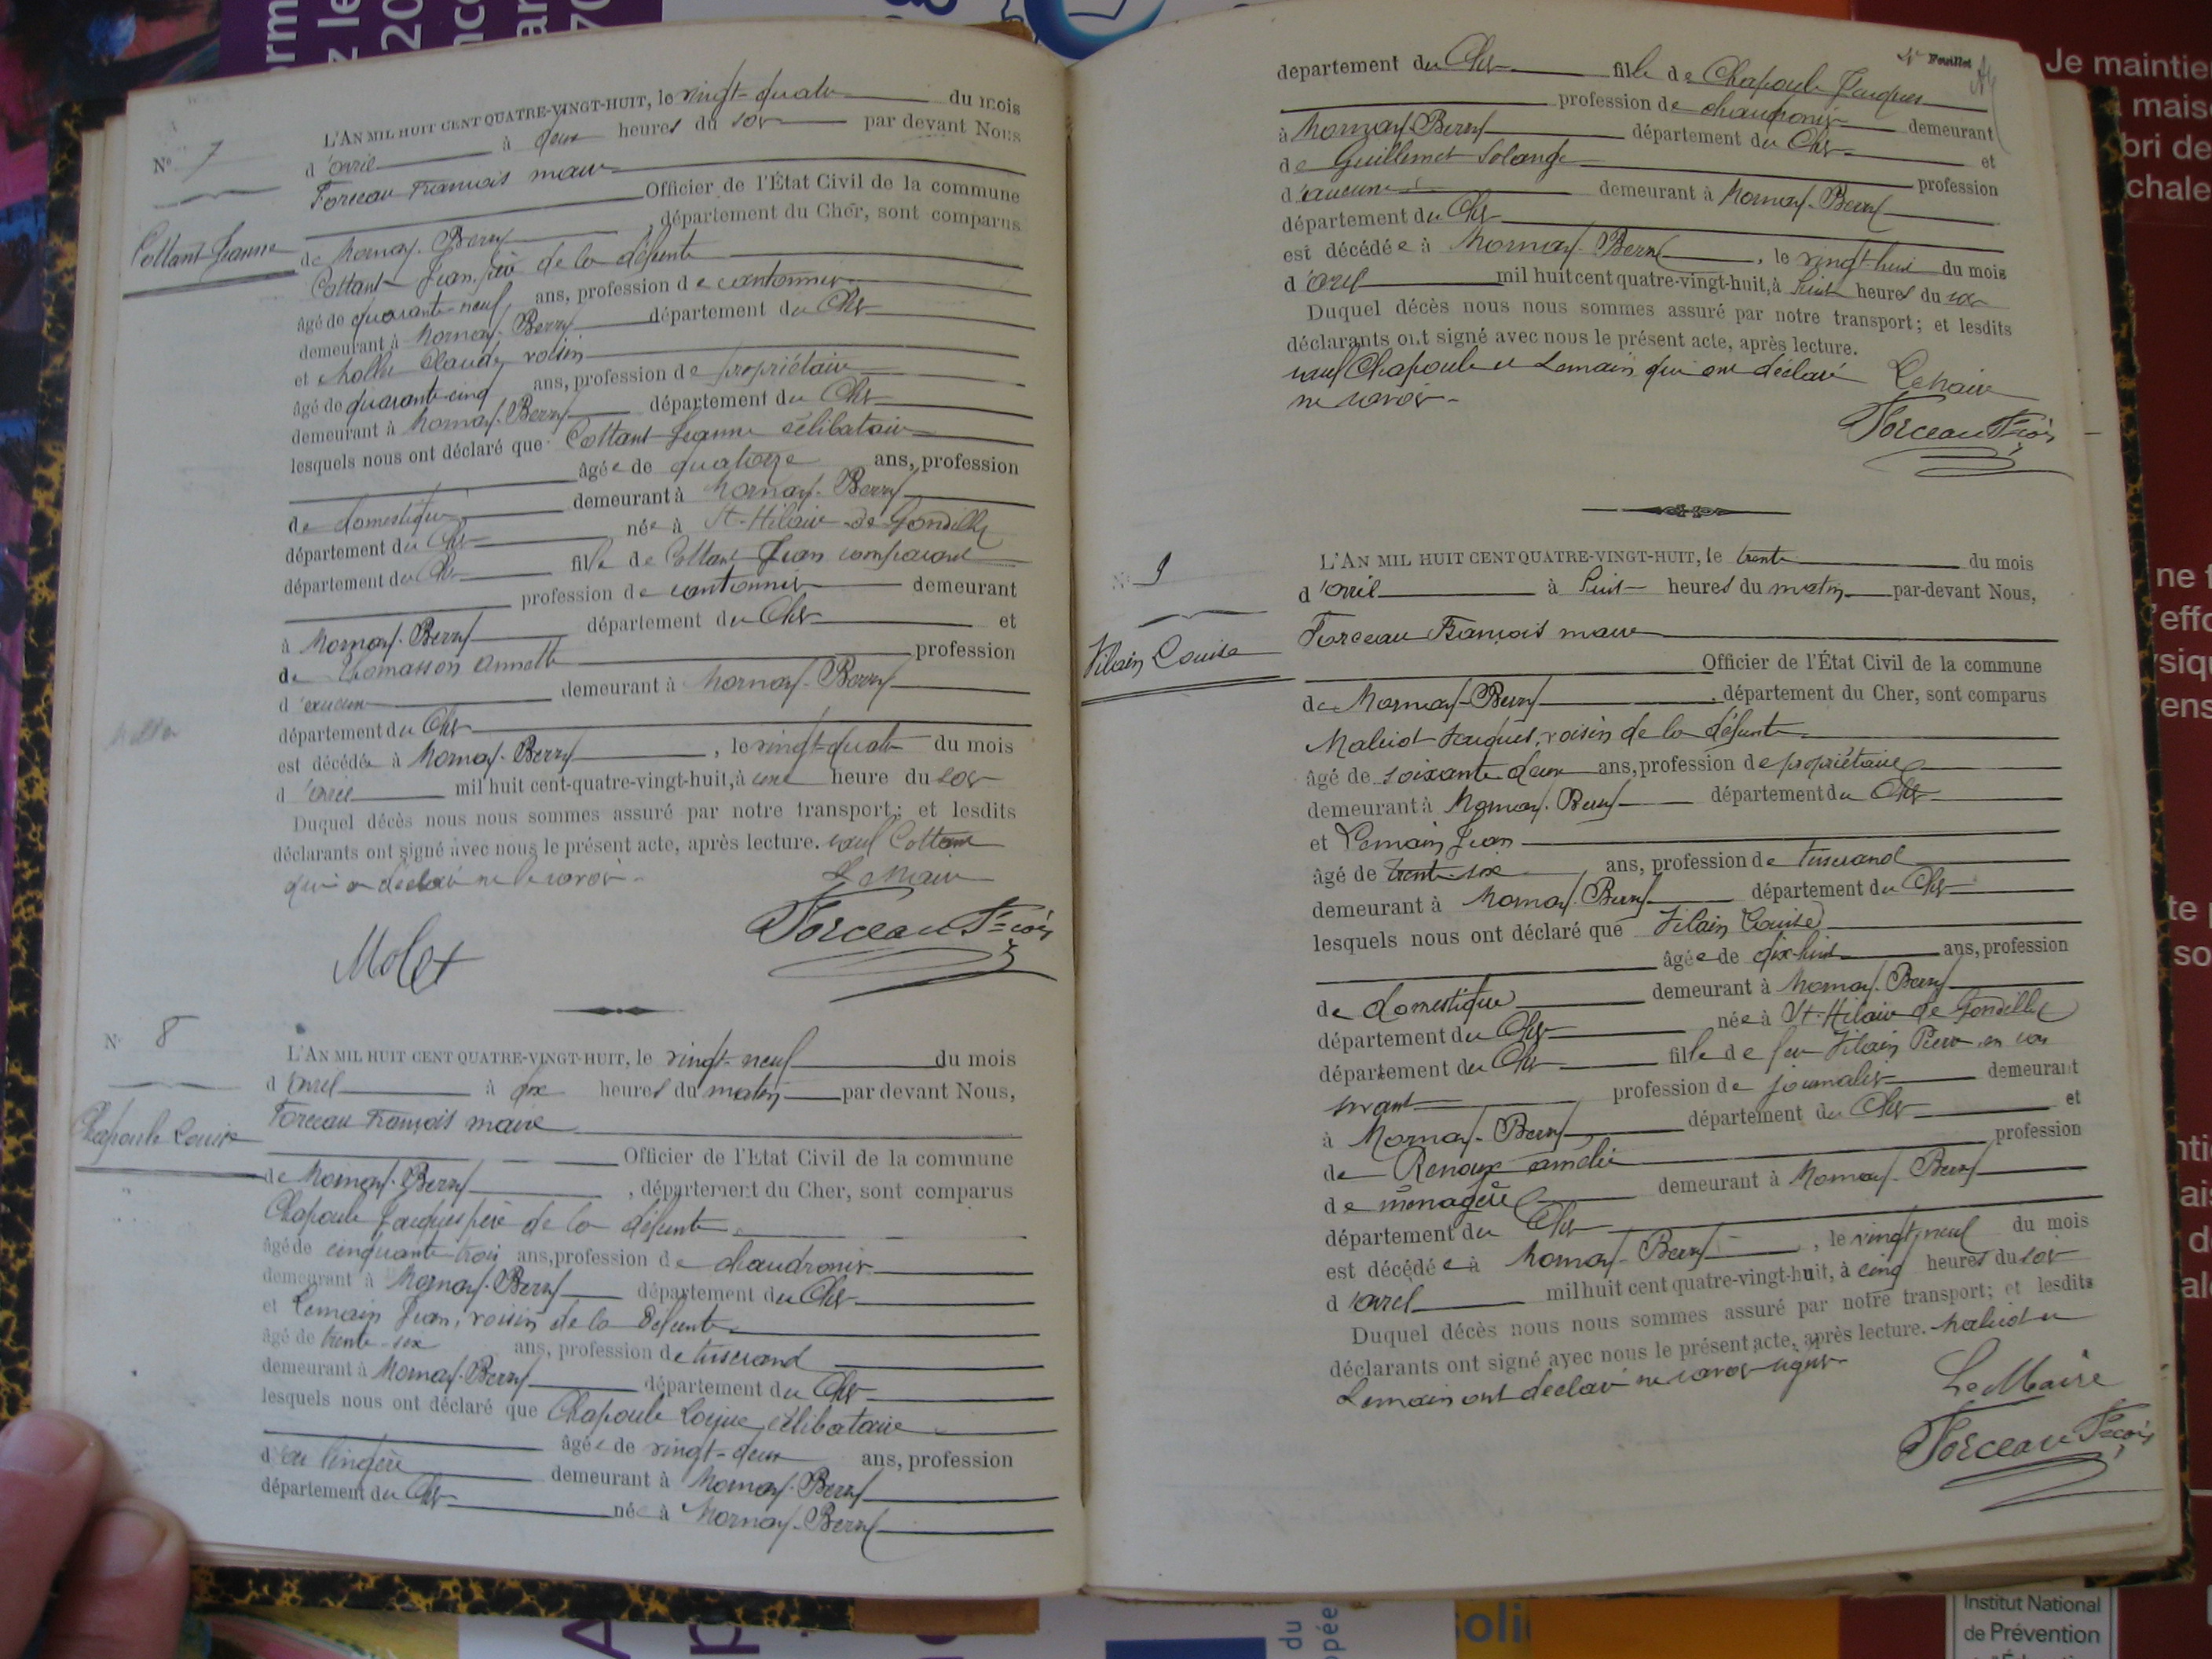 Nº 7
Cottant Jeanne
L'AN MIL HUIT CENT QUATRE-VINGT-HUIT, le vingt-quatre du mois
d'avril à deux heures du soir par devant Nous
Forceau François maire
Officier de l'État Civil de la commune
de Mornay-Berry, département du Cher, sont comparus
Cottant Jean, père de la défunte
âgé de quarante-neuf ans, profession de cantonnier
demeurant à Mornay-Berry département du Cher
et Claude, voisin
âgé de quarante-cinq ans, profession de propriétaire
demeurant à Mornay-Berry département du Cher
lesquels nous ont déclaré que Cottant Jeanne célibataire
âgée de quatorze ans, profession
de domestique demeurant à Mornay-Berry
département du Cher née à St-Hilaire de Gondilly
département du Cher fille de Cottant Jean comparant
profession de cantonnier demeurant
à Mornay-Berry département du Cher et
de Thomasson Annette profession
d'aucune demeurant à Mornay-Berry
département du Cher
est décédée à Mornay-Berry, le vingt-quatre du mois
d'avril mil huit cent-quatre-vingt-huit, à une heure du soir
Duquel décès nous nous sommes assuré par notre transport; et lesdits
déclarants ont signé avec nous le présent acte, après lecture. sauf Cottant
qui a déclaré ne le savoir.
Le Maire
Forceau Fçois
Molet
N° 8
Chapoule Louise
L'AN MIL HUIT CENT QUATRE-VINGT-HUIT, le vingt-neuf du mois
d'avril à dix heures du matin par devant Nous,
Forceau François maire
Officier de l'État Civil de la commune
de Mornay-Berry, département du Cher, sont comparus
Chapoule Jacques père de la défunte
âgé de cinquante-trois ans, profession de chaudronier
demeurant à Mornay-Berry département du Cher
et Lemain Jean, voisin de la défunte
âgé de trente-six ans, profession de tisserand
demeurant à Mornay-Berry département du Cher
lesquels nous ont déclaré que Chapoule Louise célibataire
âgée de vingt-deux ans, profession
de lingère demeurant à Mornay-Berry
département du Cher née à Mornay-Berry
4e Feuillet
département du Cher fille de Chapoule Jacques
profession de chaudronier demeurant
à Mornay-Berry département du Cher et
de Guillemet Solange profession
d'aucune demeurant à Mornay-Berry
département du Cher
est décédée à Mornay-Berry, le vingt-huit du mois
d'avril mil huit cent quatre-vingt-huit, à huit heures du soir
Duquel décès nous nous sommes assuré par notre transport; et lesdits
déclarants ont signé avec nous le présent acte, après lecture.
sauf Chapoule et Lemain qui ont déclaré
ne savoir.
Le Maire
Forceau Fçois
N° 9
Vilain Louise
L'AN MIL HUIT CENT QUATRE-VINGT-HUIT, le trente du mois
d'avril à huit heures du matin par-devant Nous,
Forceau François maire
Officier de l'État Civil de la commune
de Mornay-Berry, département du Cher, sont comparus
Jacques, voisin de la défunte
âgé de soixante deux ans, profession de propriétaire
demeurant à Mornay-Berry département du Cher
et Lemain Jean
âgé de trente-six ans, profession de tisserand
demeurant à Mornay-Berry département du Cher
lesquels nous ont déclaré que Vilain Louise
âgée de dix-huit ans, profession
de domestique demeurant à Mornay-Berry
département du Cher née à St-Hilaire de Gondilly
département du Cher fille de feu Vilain Pierre en son
vivant profession de journalier demeurant
à Mornay-Berry département du Cher et
de Renoux Amélie profession
de ménagère demeurant à Mornay-Berry
département du Cher
est décédée à Mornay-Berry, le vingt-neuf du mois
d'avril mil huit cent quatre-vingt-huit, à cinq heures du soir
Duquel décès nous nous sommes assuré par notre transport; et lesdits
déclarants ont signé avec nous le présent acte, après lecture.
Lemain ont déclaré ne savoir signer.
Le Maire
Forceau Fçois
Je maintie
Institut National
de Prévention